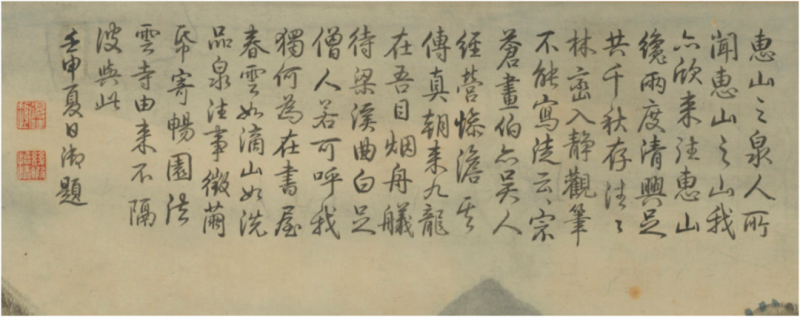 惠山之泉人所
聞惠山之山我
亦欣來往惠山
纔兩度清興足
共千秋存往〻
林巒入靜觀筆
不能寫徒云〻宗
蒼畫伯亦吳人
經營慘澹
傳真朝來九龍
在吾目烟舟艤
待梁溪曲白足
僧人若可呼我
獨何為在書屋
春雲如滴山如洗
品泉往事徵繭
帋寄暢園
雲寺由來不隔
彼與此
壬申夏日御題